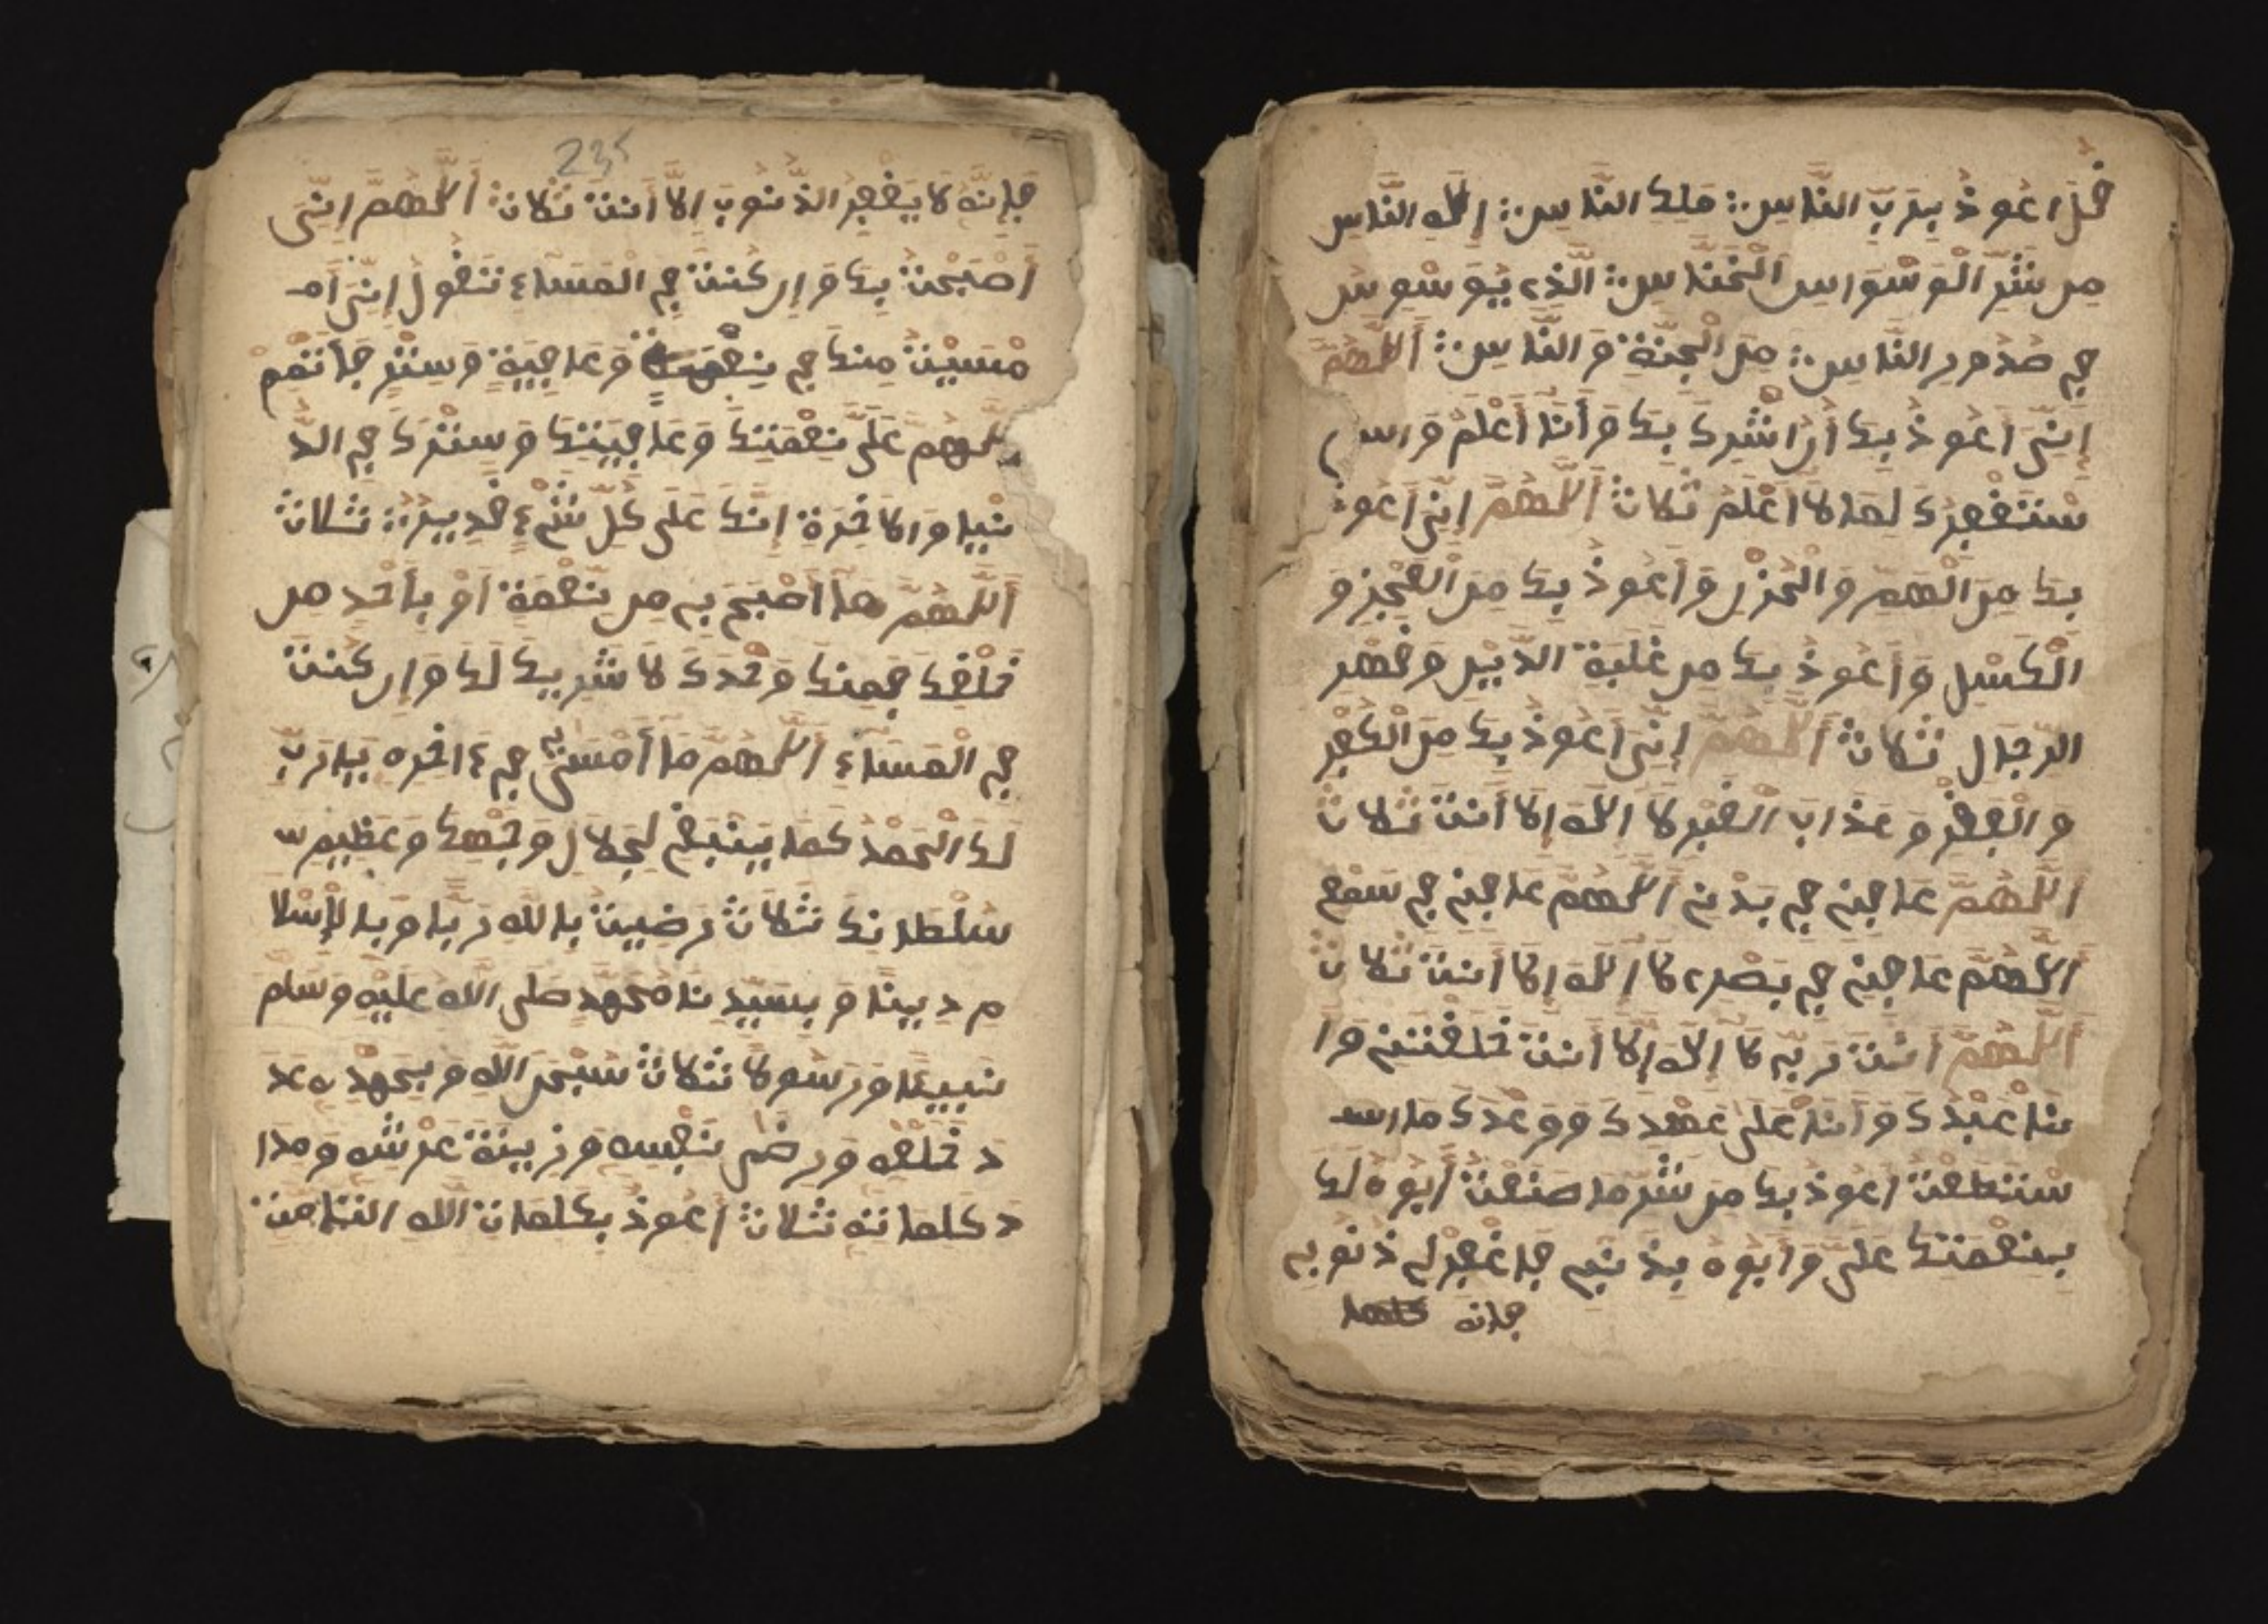 قل اعوذ برب الناس ملك الناس اله الناس
من شر الوسواس الخناس الذي يوسوس
في صدور الناس من الجنة والناس اللهم
اني اعوذ بك أن اشرك بك وأنا أعلم واس
ستغفرك لما لا اعلم ثلاث اللهم اني اعوذ
بك من الهم والحزن وأعوذ بك من العجز و
الكسل وأعوذ بك من غلبة الدين وقهر
الرجال ثلاث اللهم اني اعوذ بك من الكفر
والفقر وعذاب القبر لا اله الا أنت ثلاث
اللهم عافني في بدني اللهم عافني في سمعي
اللهم عافني في بصري لا اله الا أنت ثلاث
اللهم أنت ربي لا اله الا أنت خلقتني وا
منا عبدك وأنا على عهدك ووعدك ما اسـ
ستطعت اعوذ بك من شر ما صنعت أبوء لك
بنعمتك علي وأبوء بذنبي فاغفر لي ذنوبي
فإنه
235
فإنه لا يغفر الذنوب الا أنت ثلاث اللهم إني
أصبحت بك وإن كنت في المساء تقول إني أمـ
مسيت منك في نعمة وعافية وستر فأتمم
اللهم علي نعمتك وعافيتك وسترك في الد
نيا والاخرة إنك على كل شيء قدير ثلاث
اللهم ما أصبح بي من نعمة أو بأحد من
خلقك فمنك وحدك لا شريك لك وإن كنت
في المساء اللهم ما أمسى بي في ءاخره يا رب
لك الحمد كما ينبغي لجلال وجهك وعظيم
سلطانك ثلاث رضيت بالله ربا وبالإسلا
م دينا وبسيدنا محمد صلى الله عليه وسلم
نبيئا ورسولا ثلاث سبحن الله وبحمده عد
د خلقه ورضى نفسه وزينة عرشه ومدا
د كلماته ثلاث أعوذ بكلمات الله التامت